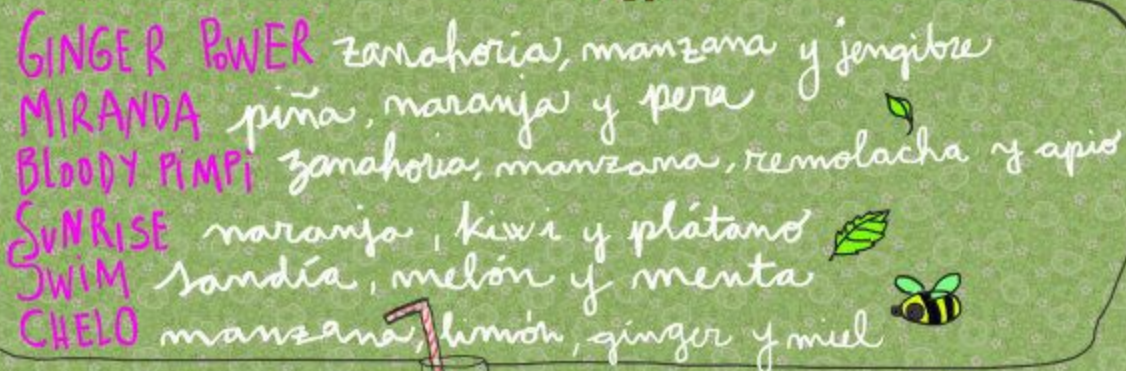 GINGER POWER zanahoria, manzana y jengibre
MIRANDA piña, naranja y pera
BLOODY PiMPi zanahoria, manzana, remolacha y apio
SuNRISE naranja, kiwi y plátano
SWiM sandía, melón y menta
CHELO manzana, limón, ginger y miel